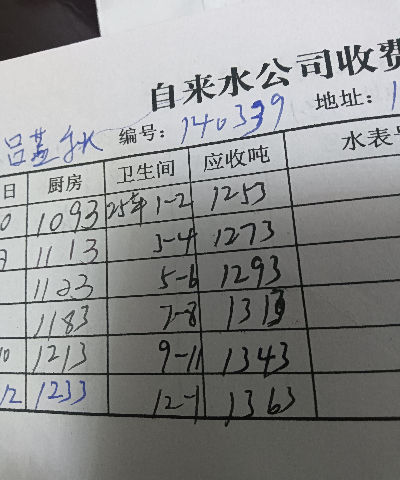 自来水公司收费
吕 编号: 140339 地址: 1
日 厨房 卫生间 应收吨 水表号
0 1093 25年1-2 1253
1113 3-4 1273
1123 5-6 1293
1183 7-8 1313
10 1213 9-11 1343
12 1233 12-1 1363